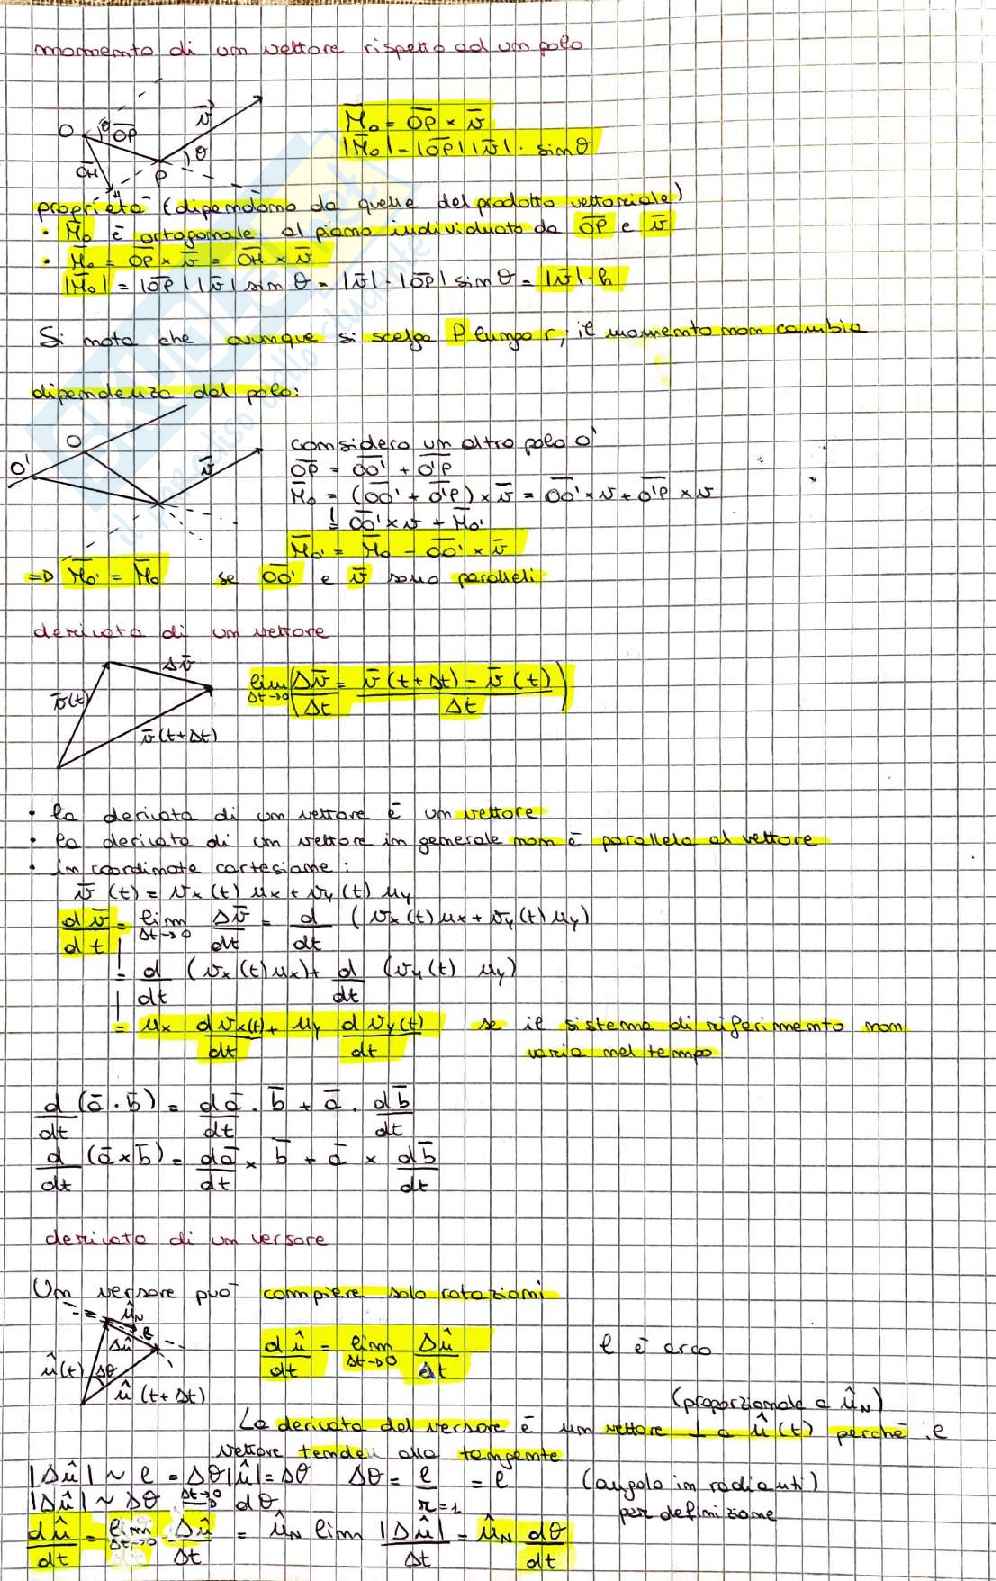 momento di un vettore rispetto ad un polo
O θ O̅P̅ v̅ θ
O̅H̅ H P
M̅o = O̅P̅ × v̅
|M̅o| = |O̅P̅| |v̅| · sinθ
proprietà (dipendono da quelle del prodotto vettoriale)
• M̅o è ortogonale al piano individuato da O̅P̅ e v̅
• M̅o = O̅P̅ × v̅ = O̅H̅ × v̅
|M̅o| = |O̅P̅| |v̅| sinθ = |v̅| · |O̅P̅| sinθ = |v̅| · h
Si nota che ovunque si scelga P lungo r, il momento non cambia
dipendenza dal polo:
O O' v̅
considero un altro polo O'
O̅P̅ = O̅O̅' + O̅'P̅
M̅o = (O̅O̅' + O̅'P̅) × v̅ = O̅O̅' × v + O̅'P̅ × v
= O̅O̅' × v + M̅o'
M̅o' = M̅o - O̅O̅' × v̅
=> M̅o' = M̅o se O̅O̅' e v̅ sono paralleli
derivata di un vettore
Δv̅
v̅(t)
v̅(t+Δt)
lim Δt→0 (Δv̅/Δt = (v̅(t+Δt) - v̅(t))/Δt)
• la derivata di un vettore è un vettore
• la derivata di un vettore in generale non è parallela al vettore
• in coordinate cartesiane:
v̅(t) = vx(t) ux + vy(t) uy
dv̅/dt = lim Δt→0 Δv̅/dt = d/dt (vx(t) ux + vy(t) uy)
= d/dt (vx(t) ux) + d/dt (vy(t) uy)
= ux dvx(t)/dt + uy dvy(t)/dt se il sistema di riferimento non
varia nel tempo
d/dt (a̅ · b̅) = da̅/dt · b̅ + a̅ · db̅/dt
d/dt (a̅ × b̅) = da̅/dt × b̅ + a̅ × db̅/dt
derivata di un versore
Un versore può compiere solo rotazioni
ûN
Δû l
û(t) Δθ
û(t+Δt)
dû/dt = lim Δt→0 Δû/Δt
l è arco
(proporzionale a ûN)
La derivata del versore è un vettore ⊥ a û(t) perché il
vettore tende alla tangente
|Δû| ~ l = Δθ|û| = Δθ Δθ = l/r=1 = l (angolo in radianti)
|Δû| ~ Δθ Δt→0 dθ per definizione
dû/dt = lim Δt→0 Δû/Δt = ûN lim |Δû|/Δt = ûN dθ/dt